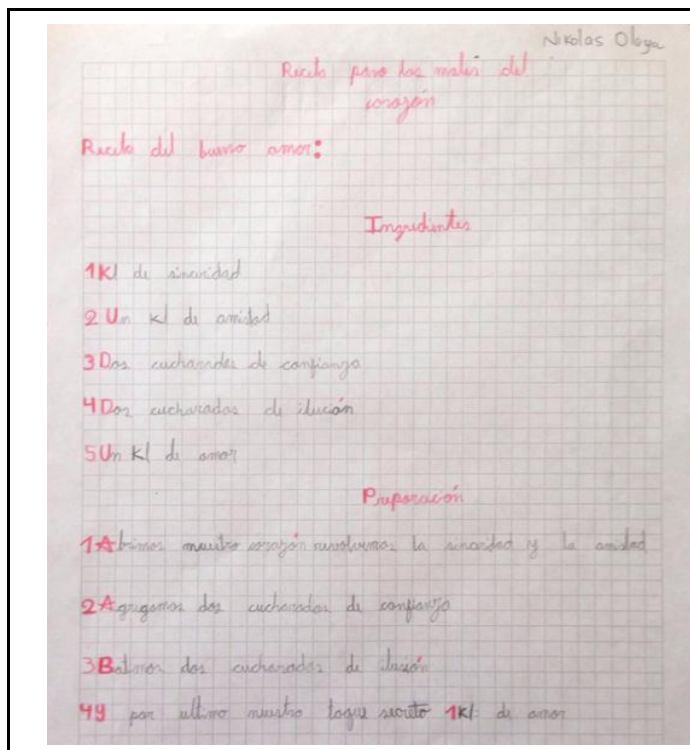 Nikolas Olaya
Receta para los males del
corazón
Receta del bueno amor:
Ingredientes
1 Kl de sinceridad
2 Un kl de amistad
3 Dos cucharadas de confianza
4 Dos cucharadas de ilución
5 Un Kl de amor
Preparación
1 Abrimos nuestro corazón revolvemos la sinceridad y la amistad
2 Agregamos dos cucharadas de confianza
3 Batimos dos cucharadas de ilución
4 y por ultimo nuestro toque secreto 1kl de amor